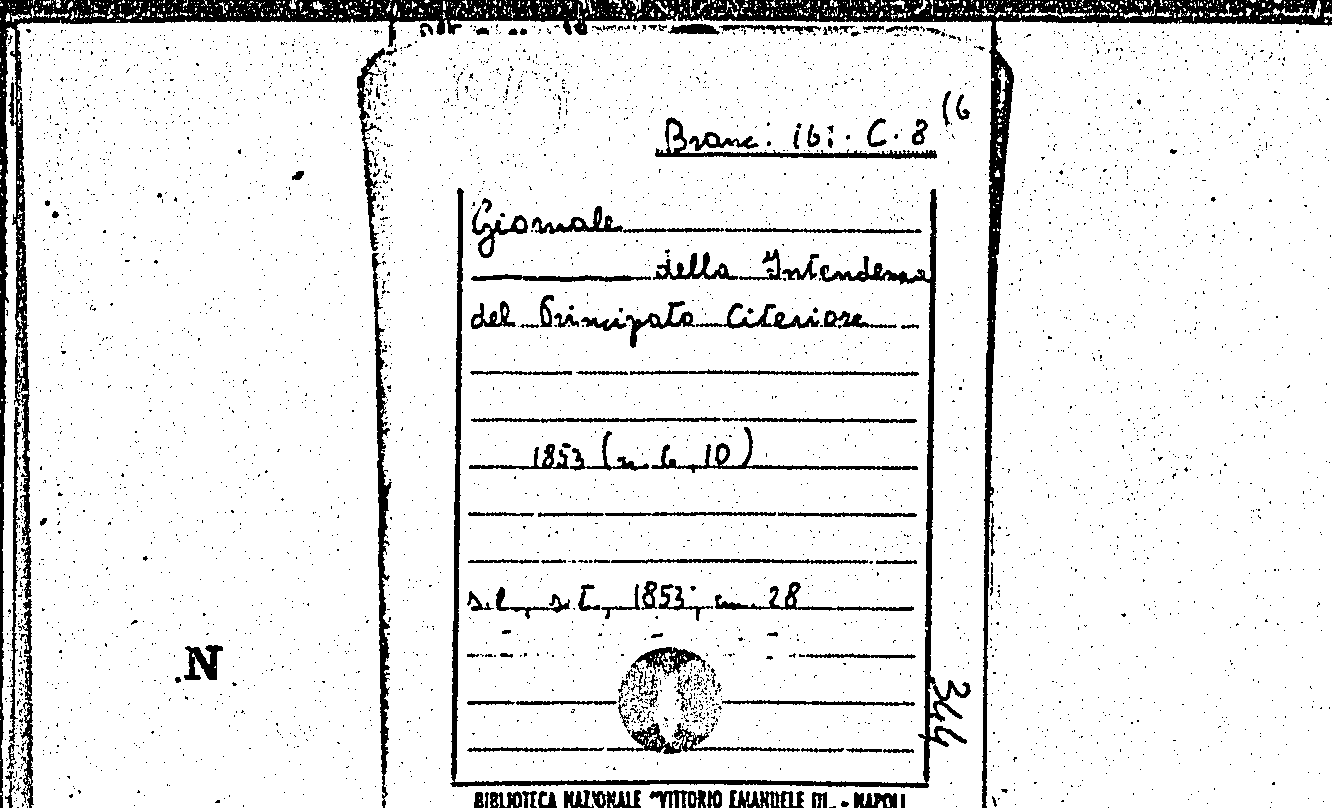 (6
Branc. 16i. C. 8
Giornale
della Intendenza
del Principato Citeriore
1853 (n. 6, 10)
s.l., s.t., 1853; cm. 28
344
.N
BIBLIOTECA NAZIONALE "VITTORIO EMANUELE III. - NAPOLI